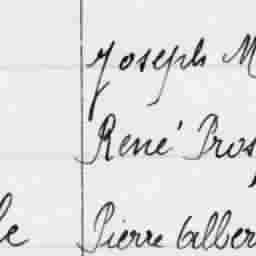 Joseph M
René Pros
le Pierre Alber